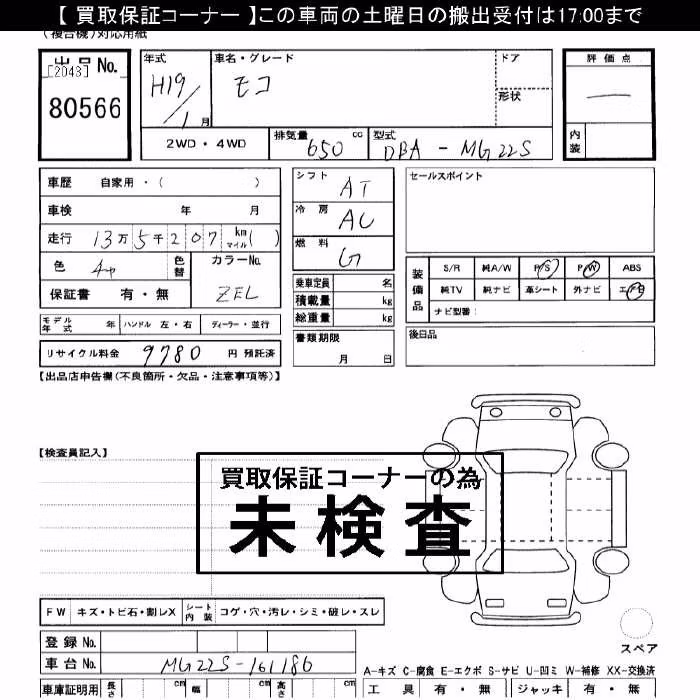 【 買取保証コーナー 】この車両の土曜日の搬出受付は17:00まで
(複合機)対応用紙
出品 No.
[2043]
80566
年式 H19/1月
車名・グレード モコ
ドア
形状
評価点
―
内装
2WD・4WD
排気量 650 cc
型式 DBA - MG22S
車歴 自家用・( )
車検 年 月
走行 13万5千207 km マイル( )
色
色替
カラーNo.
ZEL
保証書 有・無
シフト AT
冷房 AC
燃料 G
乗車定員 名
積載量 kg
総重量 kg
書類期限
月 日
セールスポイント
装備品
S/R 純A/W P/S P/W ABS
純TV 純ナビ 革シート 外ナビ エアB
ナビ型番:
後日品
モデル年式 年 ハンドル 左・右 ディーラー・並行
リサイクル料金 9780 円 預託済
【出品店申告欄(不良箇所・欠品・注意事項等)】
【検査員記入】
買取保証コーナーの為
未検査
FW キズ・トビ石・割レX シート内装 コゲ・穴・汚レ・シミ・破レ・スレ
登録 No.
車台 No. MG22S-161186
車庫証明用 長さ cm 幅 cm 高さ cm
スペア
A-キズ C-腐食 E-エクボ S-サビ U-凹ミ W-補修 XX-交換済
工具 有・無 ジャッキ 有・無